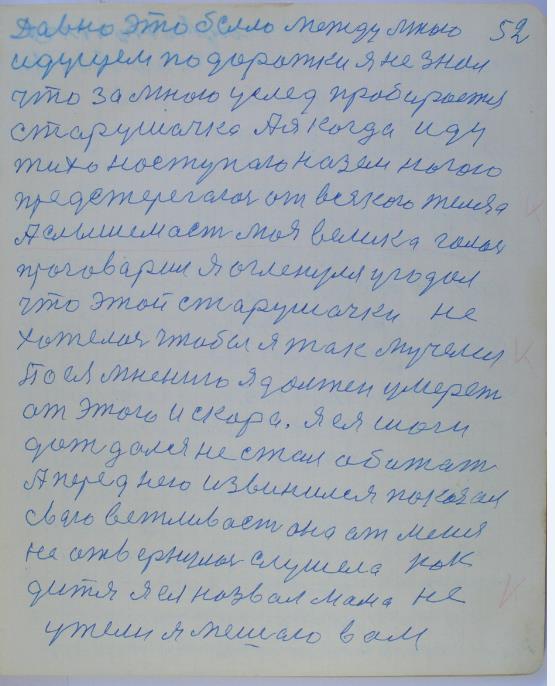 Давно это было между мною 52
идущем по дорожки я не знал
что за мною услед пробирается
старушачка А я когда иду
тихо наступаю на зем ногою
предстерегался от всякого телега
А слышемаст моя велика голос
проговарил я огленулся угодал
что этой старушачки не
хотелося чтобы я так мучелся
По ея мнению я должен умереть
от этого и скора. я ея шаги
дождался не стал обижат
А перед нею извинился показал
сваю вежливаст она от меня
не отвернулася слушела как
дитя я ея назвал мама не
ужели я мешаю вам